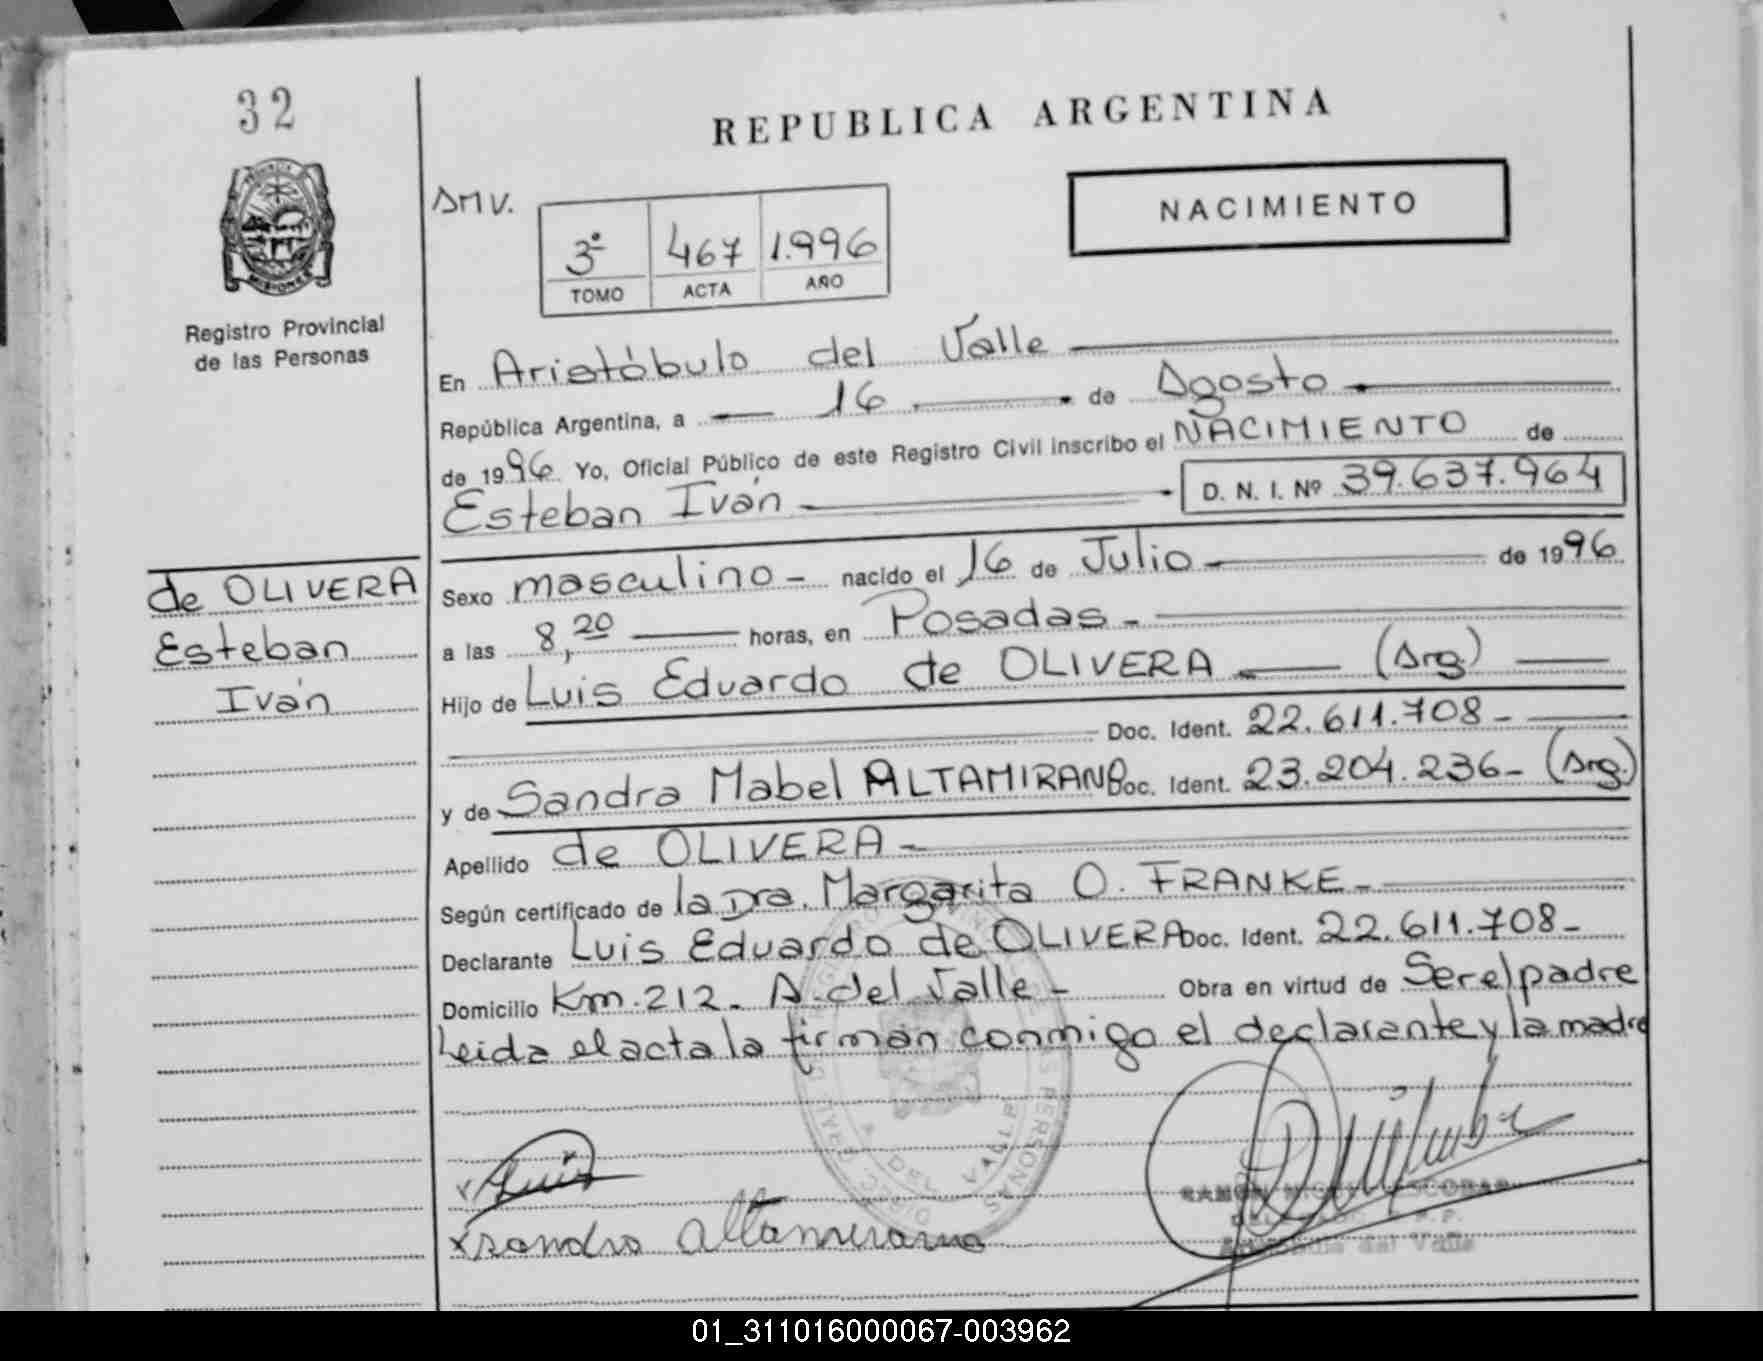 32
REPUBLICA ARGENTINA
NACIMIENTO
AMV.
3º 467 1.996
TOMO ACTA AÑO
PROVINCIA
MISIONES
Registro Provincial
de las Personas
En Aristóbulo del Valle
República Argentina, a 16 de Agosto
de 1996 Yo, Oficial Público de este Registro Civil inscribo el NACIMIENTO de
Esteban Iván D. N. I. Nº 39.637.964
de OLIVERA
Esteban
Iván
Sexo masculino - nacido el 16 de Julio de 1996
a las 8,20 horas, en Posadas -
Hijo de Luis Eduardo de OLIVERA (Arg)
Doc. Ident. 22.611.708 -
y de Sandra Mabel ALTAMIRANO Doc. Ident. 23.204.236 - (Arg.)
Apellido de OLIVERA -
Según certificado de la Dra. Margarita O. FRANKE -
Declarante Luis Eduardo de OLIVERA Doc. Ident. 22.611.708 -
Domicilio Km. 212 - A. del Valle - Obra en virtud de Ser el padre
Leida el acta la firman conmigo el declarante y la madre
DEL VALLE
PERSONAS
Luis
Sandra Altamirano
RAMON MIGUEL ESCOBAR
del Valle
01_311016000067-003962